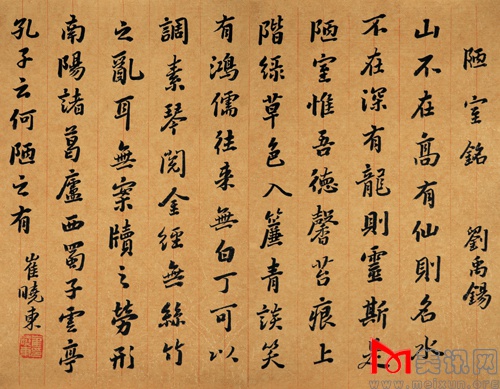 陋室銘 劉禹錫
山不在高有仙則名水
不在深有龍則靈斯是
陋室惟吾德馨苔痕上
階綠草色入簾青談笑
有鴻儒往來無白丁可以
調素琴閱金經無絲竹
之亂耳無案牘之勞形
南陽諸葛廬西蜀子雲亭
孔子云何陋之有
崔曉東
美讯网